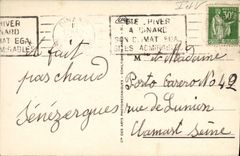 HIVER
DINARD
MAT EGA
ÉTÉ HIVER
A DINARD
CLIMAT EGAL
SITES ADMIRABLES
50c
il fait
pas chaud
Sénézergues
M et Madame
Porto Carero No 42
rue de Lunain
Clamart Seine